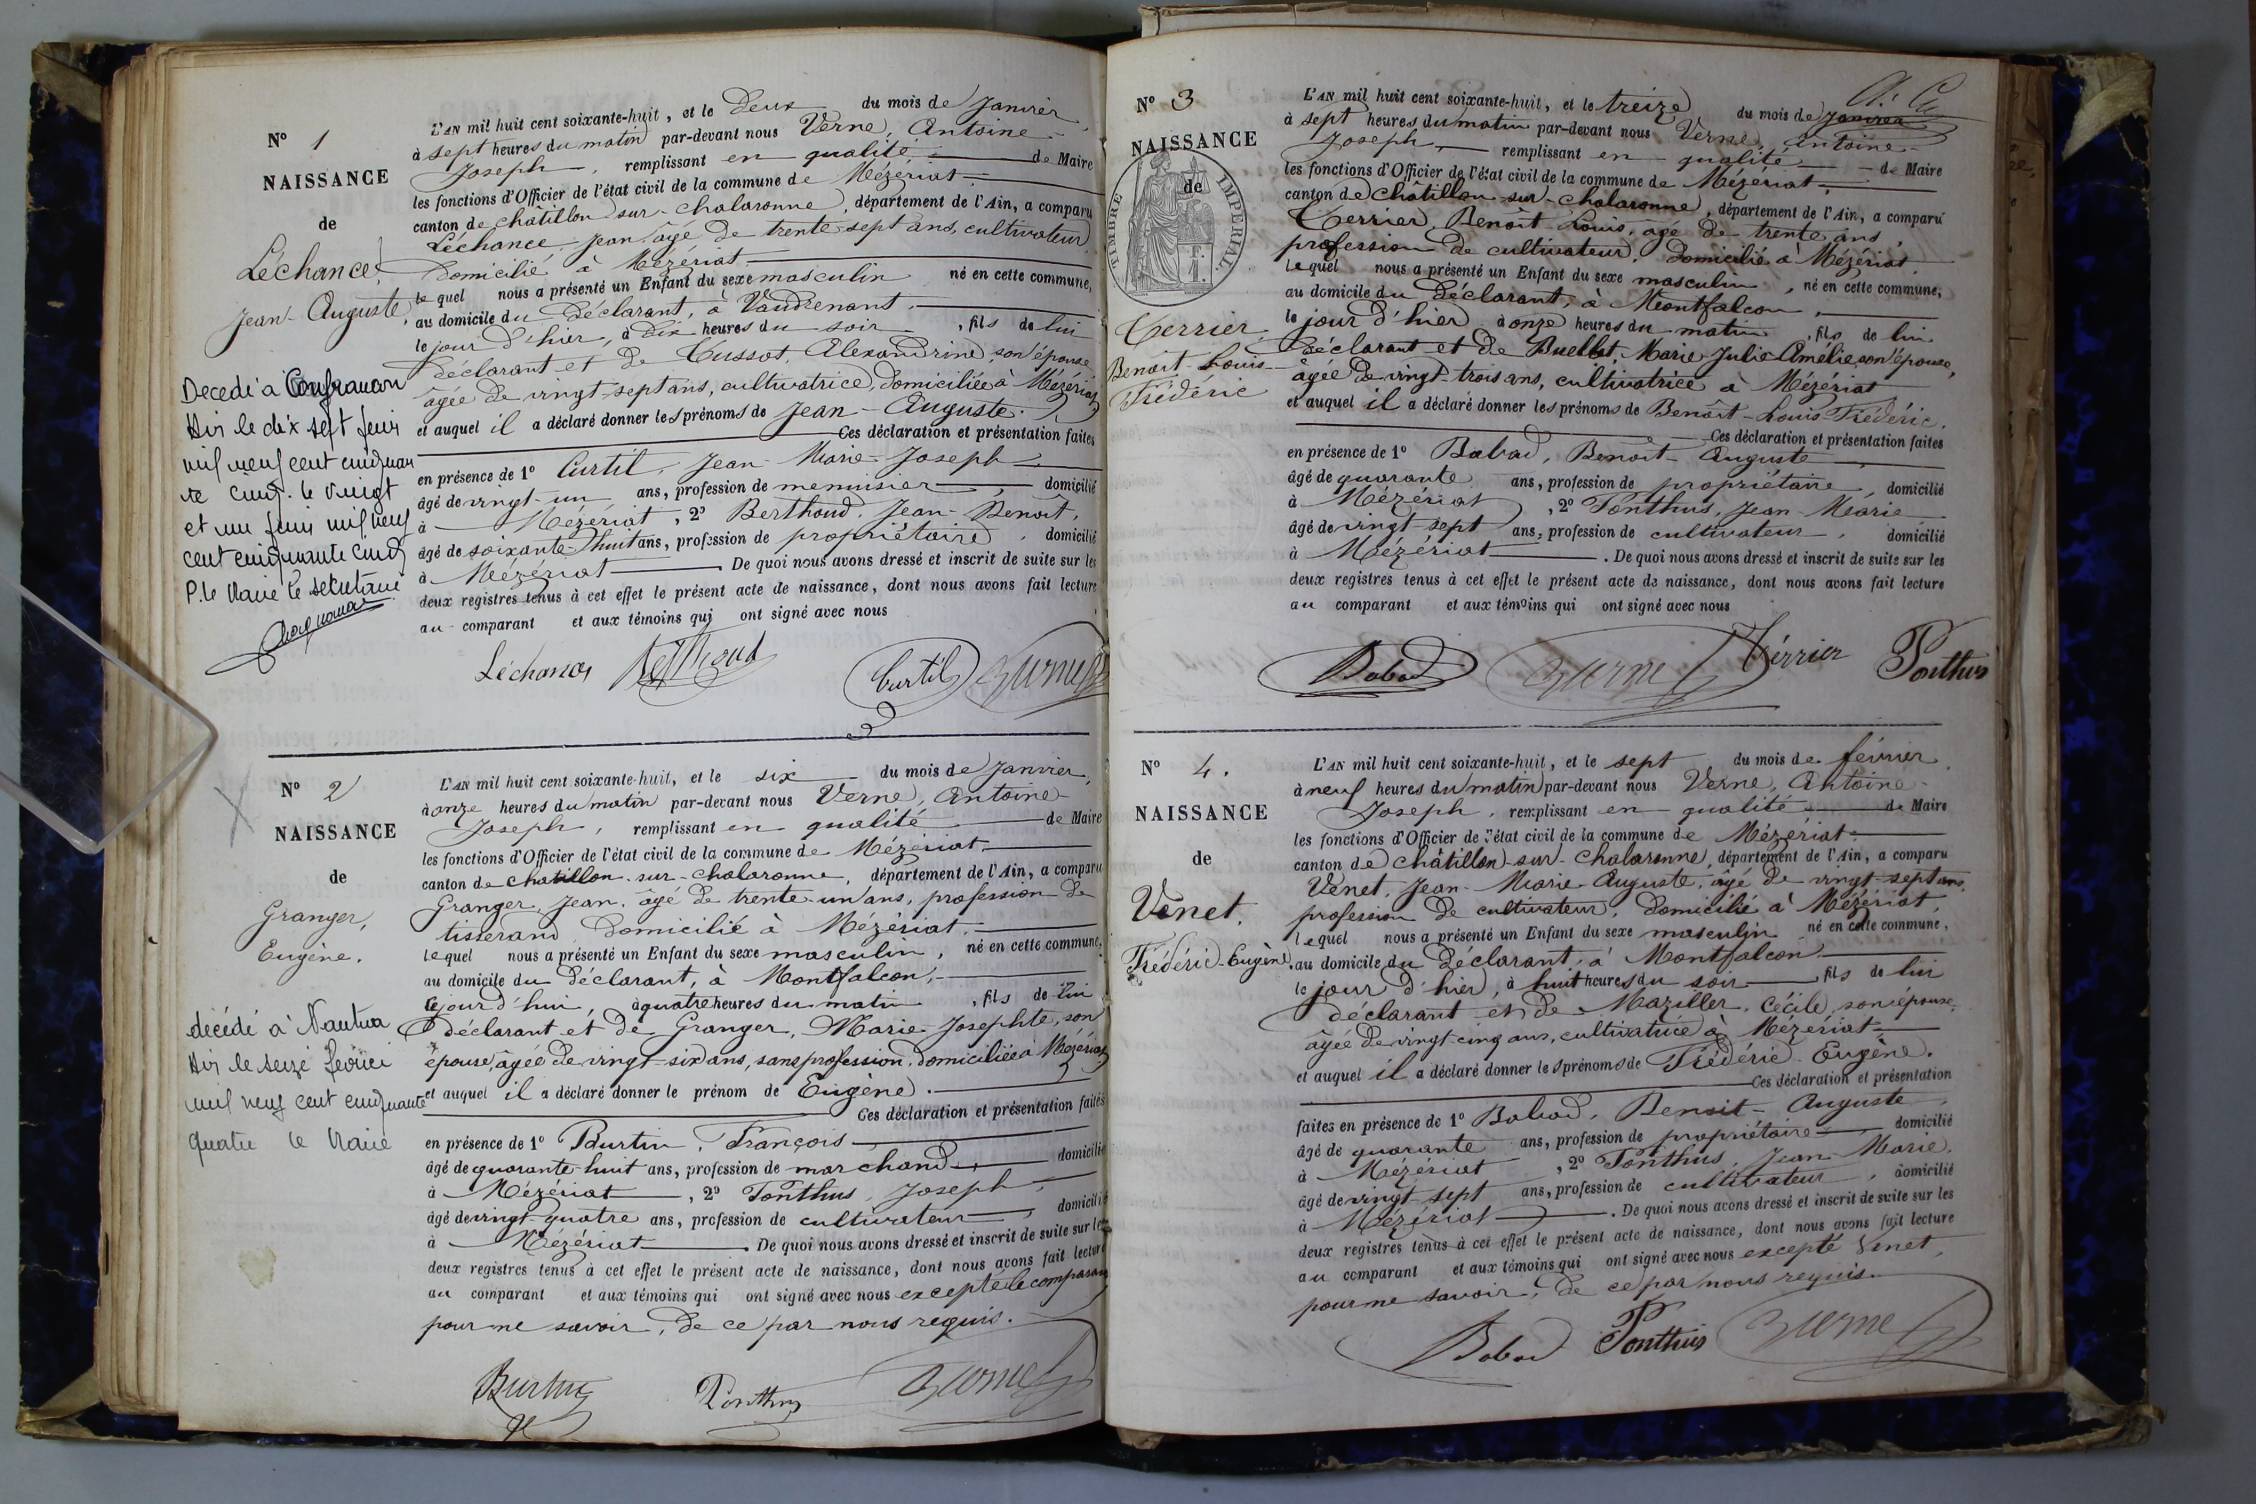 N° 1
NAISSANCE
de
Léchance,
Jean-Auguste,
Decedé a Confrancon
Ain le dix sept juin
mil neuf cent cinquan
te cinq. le vingt
et un juin mil neuf
cent cinquante cinq
P. le Maire le secrétaire
L'AN mil huit cent soixante-huit, et le Deux du mois de Janvier,
à sept heures du matin par-devant nous Verne, Antoine-
Joseph, remplissant en qualité de Maire
les fonctions d'Officier de l'état civil de la commune de Mézériat,
canton de châtillon-sur-chalaronne, département de l'Ain, a comparu
Léchance, Jean, âgé de trente-sept ans, cultivateur,
domicilié à Mézériat
le quel nous a présenté un Enfant du sexe masculin né en cette commune,
au domicile du déclarant, à Vaudrenant,
le jour d'hier, à dix heures du soir, fils de lui
déclarant et de Cussot, Alexandrine, son épouse,
âgée de vingt-sept ans, cultivatrice, domiciliée à Mézériat
et auquel il a déclaré donner les prénoms de Jean-Auguste.
Ces déclaration et présentation faites
en présence de 1° Curtil, Jean-Marie-Joseph
âgé de vingt-un ans, profession de menuisier, domicilié
à Mézériat, 2° Berthoud, Jean-Benoît,
âgé de soixante-huit ans, profession de propriétaire, domicilié
à Mézériat. De quoi nous avons dressé et inscrit de suite sur les
deux registres tenus à cet effet le présent acte de naissance, dont nous avons fait lecture
au comparant et aux témoins qui ont signé avec nous
Léchance Berthoud Curtil Verne
N° 2
NAISSANCE
de
Granger,
Eugène.
décédé à Nantua
Ain le seize février
mil neuf cent cinquante
quatre le Maire
L'AN mil huit cent soixante-huit, et le six du mois de Janvier,
à onze heures du matin par-devant nous Verne, Antoine-
Joseph, remplissant en qualité de Maire
les fonctions d'Officier de l'état civil de la commune de Mézériat,
canton de chatillon-sur-chalaronne, département de l'Ain, a comparu
Granger, Jean, âgé de trente-un ans, profession de
tisserand domicilié à Mézériat,
lequel nous a présenté un Enfant du sexe masculin, né en cette commune,
au domicile du déclarant, à Montfalcon,
le jour d'hui, à quatre heures du matin, fils de lui
déclarant et de Granger, Marie Josephte, son
épouse, âgée de vingt-six ans, sans profession, domiciliée à Mézériat,
et auquel il a déclaré donner le prénom de Eugène.
Ces déclaration et présentation faites
en présence de 1° Burtin, François
âgé de quarante-huit ans, profession de marchand, domicilié
à Mézériat, 2° Ponthus, Joseph,
âgé de vingt-quatre ans, profession de cultivateur, domicilié
à Mézériat. De quoi nous avons dressé et inscrit de suite sur les
deux registres tenus à cet effet le présent acte de naissance, dont nous avons fait lecture
au comparant et aux témoins qui ont signé avec nous excepté le comparant
pour ne savoir, de ce par nous requis.
Burtin Ponthus Verne
N° 3
NAISSANCE
de
TIMBRE IMPERIAL.
Terrier
Benoit-Louis-
Frédéric
L'AN mil huit cent soixante-huit, et le treize du mois de Janvier
à sept heures du matin par-devant nous Verne, Antoine-
Joseph, remplissant en qualité de Maire
les fonctions d'Officier de l'état civil de la commune de Mézériat,
canton de châtillon-sur-chalaronne, département de l'Ain, a comparu
Terrier, Benoît-Louis, âgé de trente ans,
profession de cultivateur, domicilié à Mézériat,
lequel nous a présenté un Enfant du sexe masculin, né en cette commune,
au domicile du déclarant, à Montfalcon,
le jour d'hier à onze heures du matin, fils de lui
déclarant et de Buellet, Marie Julie Amélie, son épouse,
âgée de vingt-trois ans, cultivatrice à Mézériat
et auquel il a déclaré donner les prénoms de Benoît-Louis Frédéric.
Ces déclaration et présentation faites
en présence de 1° Babad, Benoit-Auguste
âgé de quarante ans, profession de propriétaire, domicilié
à Mézériat, 2° Ponthus, Jean-Marie
âgé de vingt-sept ans, profession de cultivateur, domicilié
à Mézériat. De quoi nous avons dressé et inscrit de suite sur les
deux registres tenus à cet effet le présent acte de naissance, dont nous avons fait lecture
au comparant et aux témoins qui ont signé avec nous
Babad Verne Térrier Ponthus
N° 4.
NAISSANCE
de
Venet,
Frédéric-Eugène.
L'AN mil huit cent soixante-huit, et le sept du mois de février
à neuf heures du matin par-devant nous Verne, Antoine-
Joseph, remplissant en qualité de Maire
les fonctions d'Officier de l'état civil de la commune de Mézériat
canton de châtillon-sur-chalaronne, département de l'Ain, a comparu
Venet, Jean-Marie-Auguste, âgé de vingt-sept ans,
profession de cultivateur, domicilié à Mézériat,
lequel nous a présenté un Enfant du sexe masculin né en cette commune,
au domicile du déclarant, à Montfalcon
le jour d'hier, à huit heures du soir, fils de lui
déclarant et de Maziller, Cécile, son épouse,
âgée de vingt-cinq ans, cultivatrice à Mézériat
et auquel il a déclaré donner les prénoms de Frédéric Eugène.
Ces déclaration et présentation
faites en présence de 1° Babad, Benoit-Auguste,
âgé de quarante ans, profession de propriétaire, domicilié
à Mézériat, 2° Ponthus, Jean Marie,
âgé de vingt-sept ans, profession de cultivateur, domicilié
à Mézériat. De quoi nous avons dressé et inscrit de suite sur les
deux registres tenus à cet effet le présent acte de naissance, dont nous avons fait lecture
au comparant et aux témoins qui ont signé avec nous excepté Venet,
pour ne savoir, de ce par nous requis.
Babad Ponthus Verne